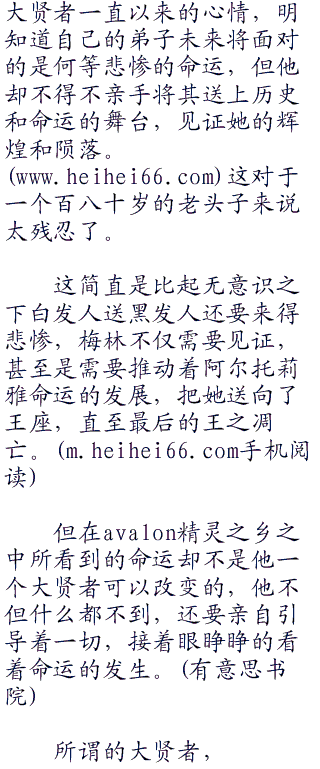 大贤者一直以来的心情，明
知道自己的弟子未来将面对
的是何等悲惨的命运，但他
却不得不亲手将其送上历史
和命运的舞台，见证她的辉
煌和陨落。
(www.heihei66.com)这对于
一个百八十岁的老头子来说
太残忍了。
这简直是比起无意识之
下白发人送黑发人还要来得
悲惨，梅林不仅需要见证，
甚至是需要推动着阿尔托莉
雅命运的发展，把她送向了
王座，直至最后的王之凋
亡。(m.heihei66.com手机阅
读)
但在avalon精灵之乡之
中所看到的命运却不是他一
个大贤者可以改变的，他不
但什么都不到，还要亲自引
导着一切，接着眼睁睁的看
着命运的发生。(有意思书
院)
所谓的大贤者，